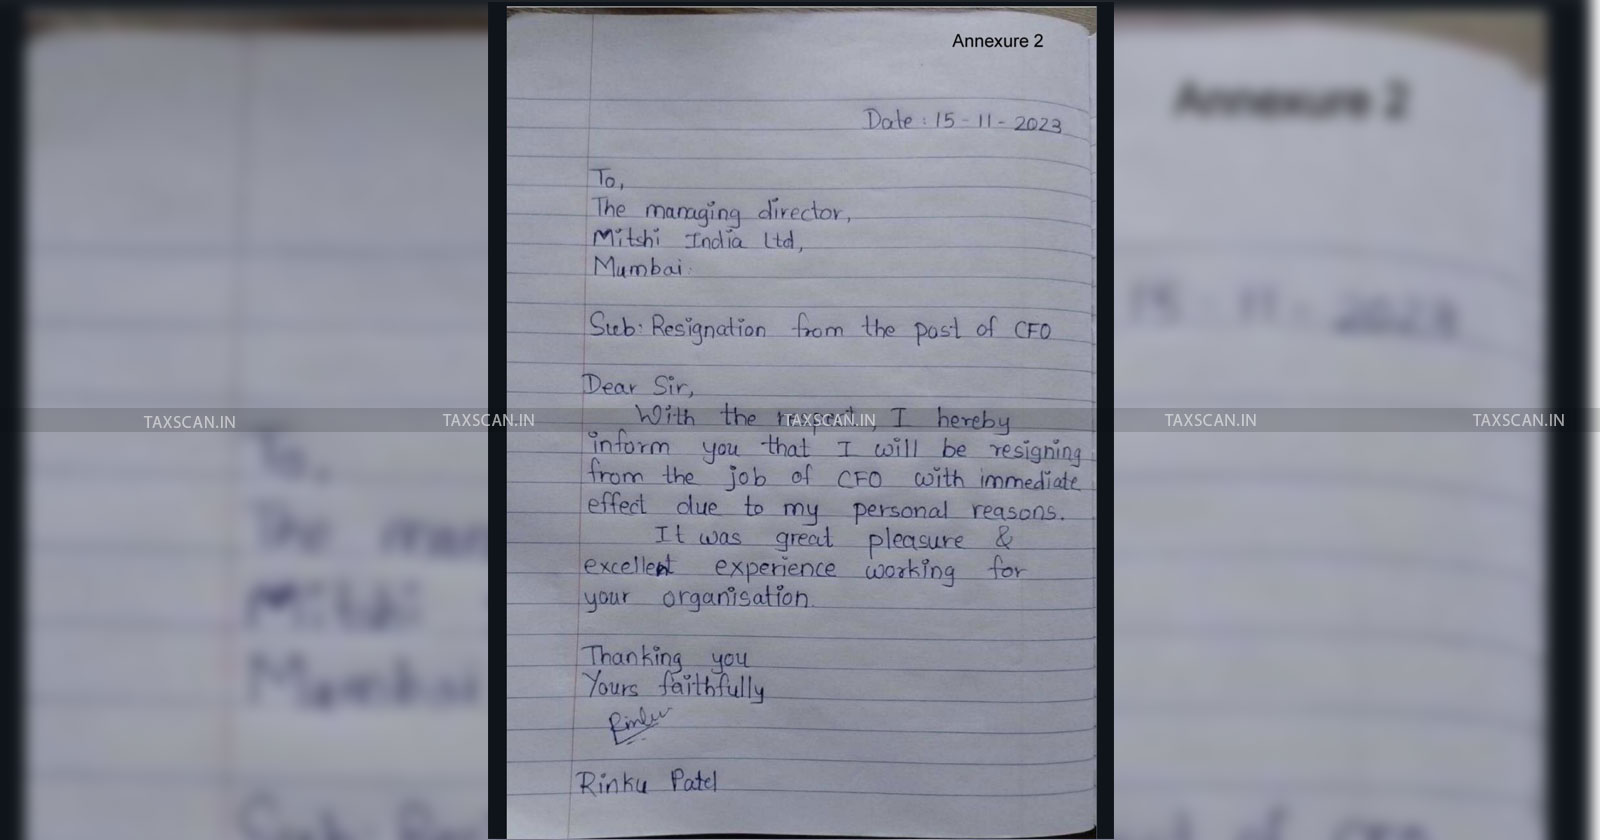 Annexure 2
Date : 15-11-2023
To,
The managing director,
Mitshi India Ltd,
Mumbai.
Sub: Resignation from the post of CFO
Dear Sir,
With the respect, I hereby
inform you that I will be resigning
from the job of CFO with immediate
effect due to my personal reasons.
It was great pleasure &
excellent experience working for
your organisation.
Thanking you
Yours faithfully
Rinku
Rinku Patel
TAXSCAN.IN TAXSCAN.IN TAXSCAN.IN TAXSCAN.IN TAXSCAN.IN